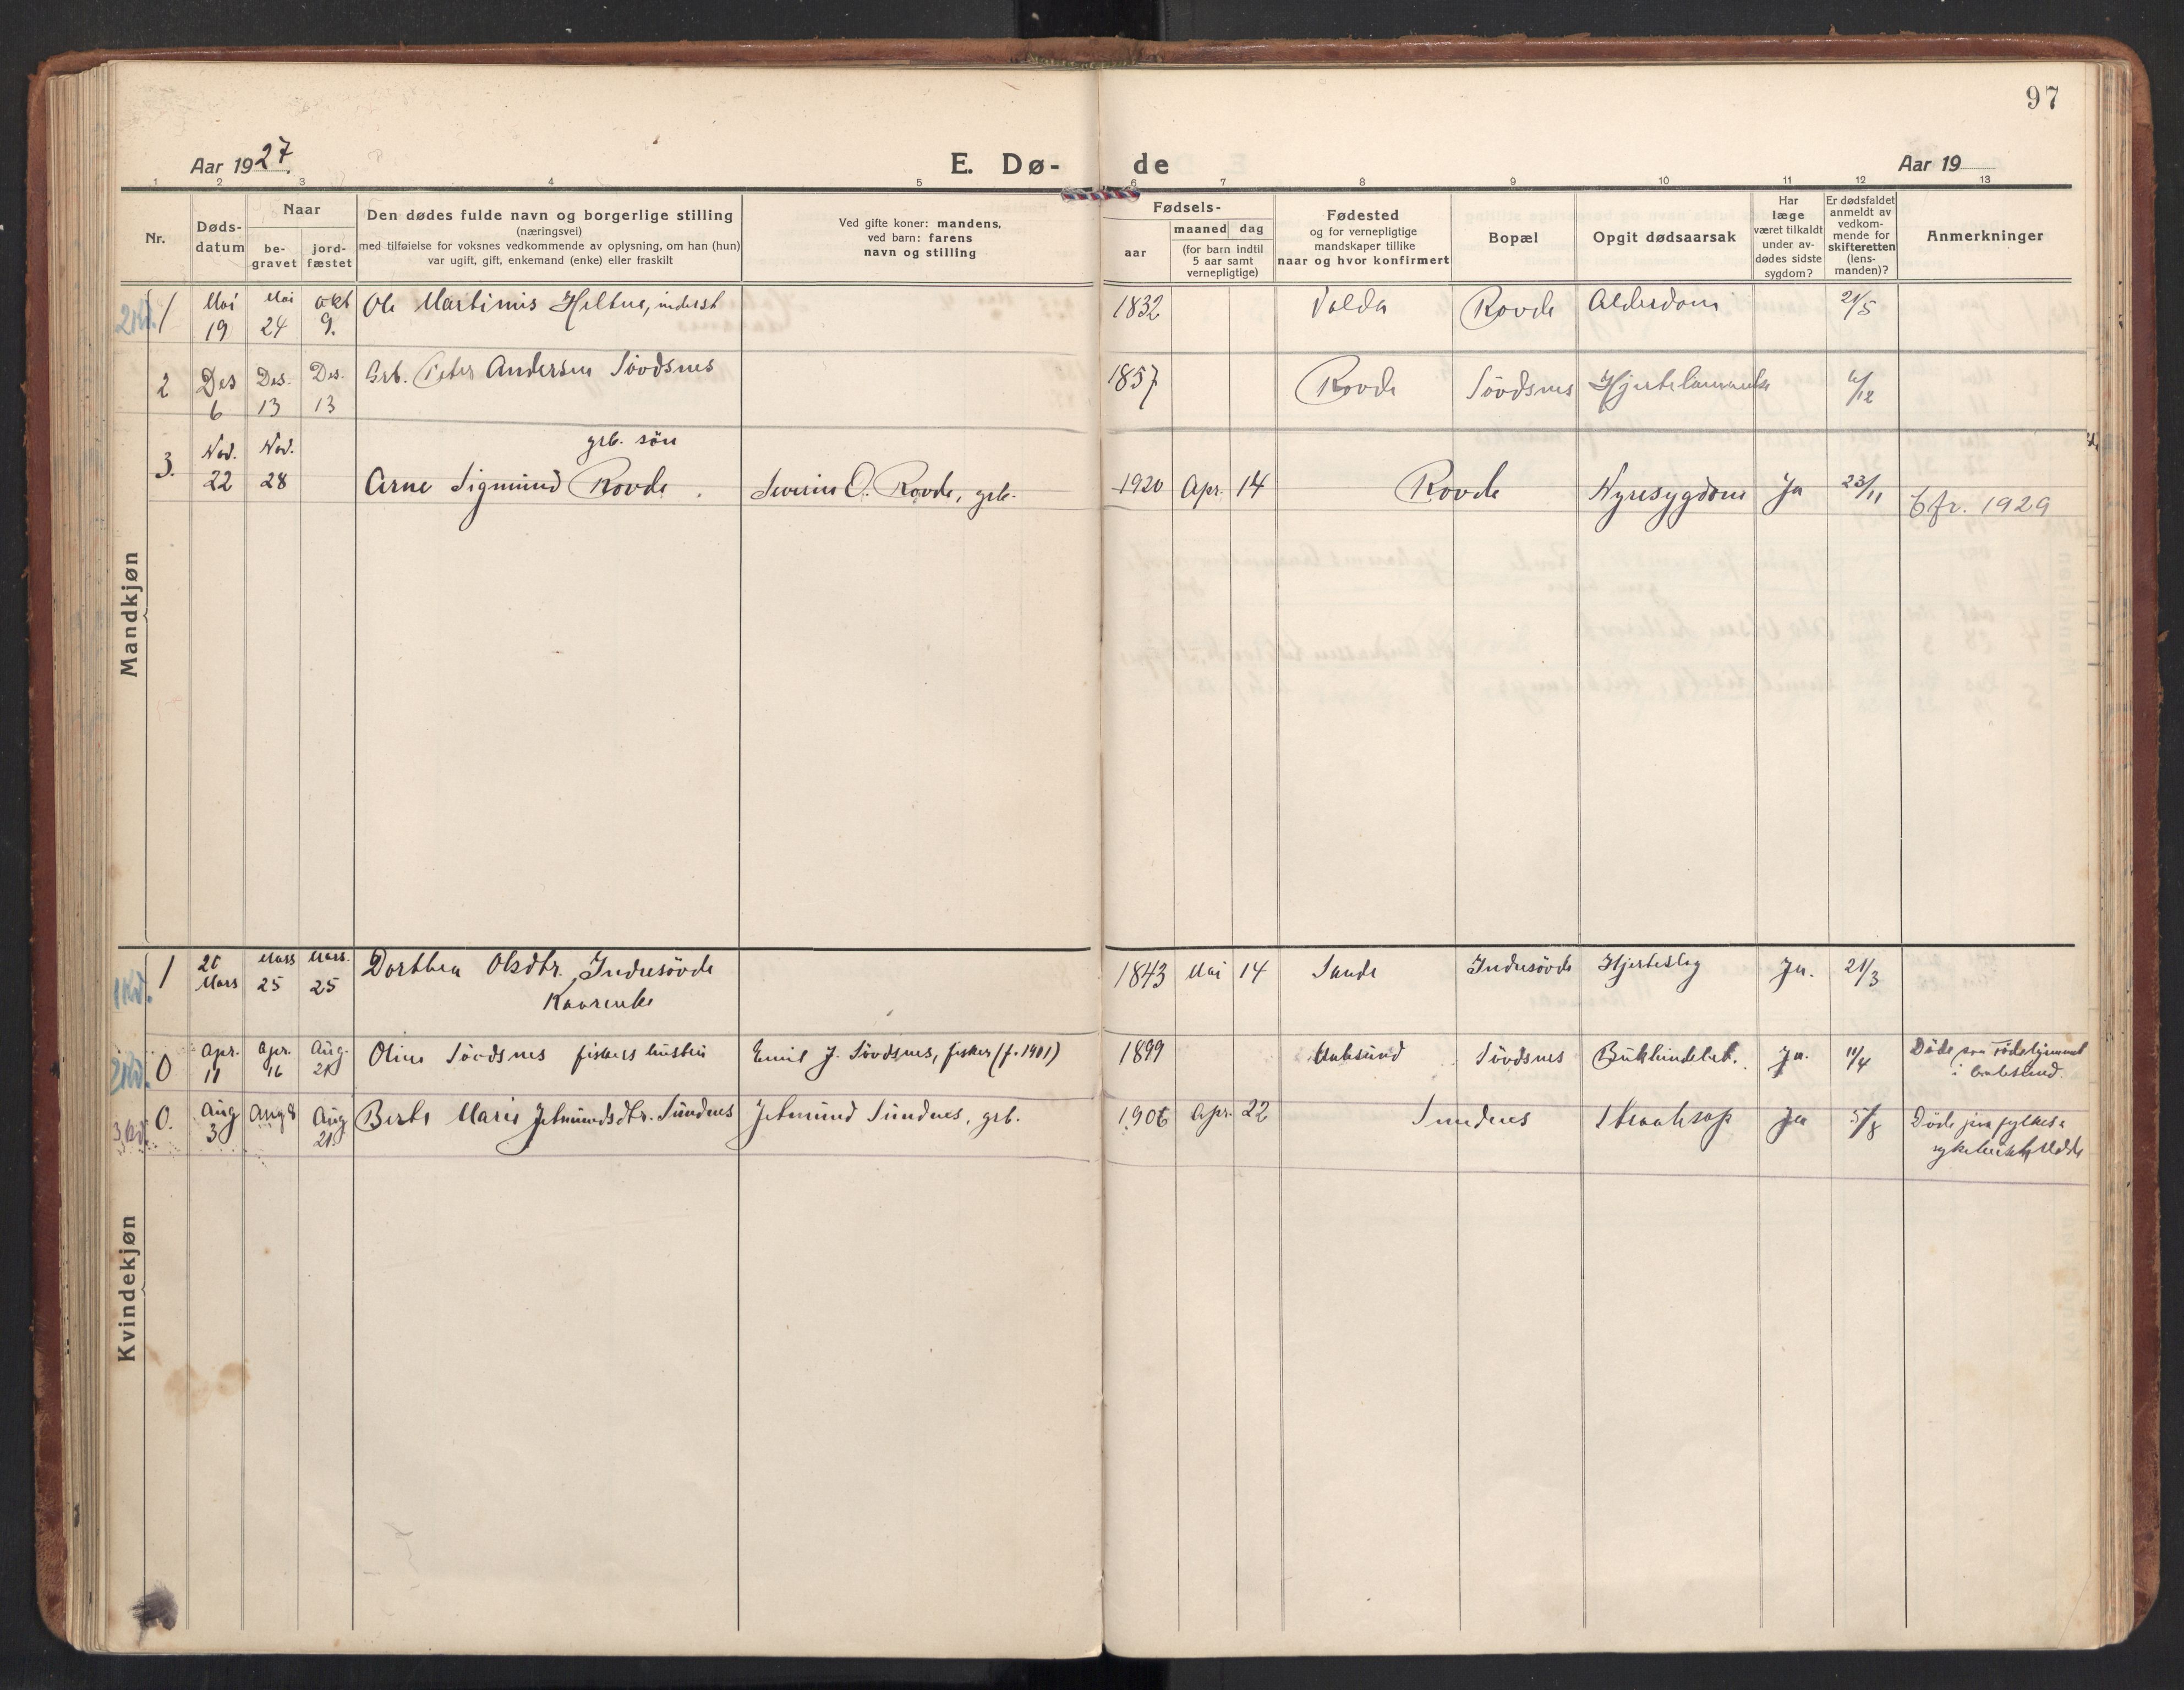 97
Aar 1927.
E. Dø-
de
Aar 19
1 2 3 4 5 6 7 8 9 10 11 12 13
Nr.
Døds-
datum
Naar
be-
gravet
jord-
fæstet
Den dødes fulde navn og borgerlige stilling
(næringsvei)
med tilføielse for voksnes vedkommende av oplysning, om han (hun)
var ugift, gift, enkemand (enke) eller fraskilt
Ved gifte koner: mandens,
ved barn: farens
navn og stilling
Fødsels-
aar
maaned dag
(for barn indtil
5 aar samt
vernepligtige)
Fødested
og for vernepligtige
mandskaper tillike
naar og hvor konfirmert
Bopæl
Opgit dødsaarsak
Har
læge
været tilkaldt
under av-
dødes sidste
sygdom?
Er dødsfaldet
anmeldt av
vedkom-
mende for
skifteretten
(lens-
manden)?
Anmerkninger
Mandkjøn
1 Mai 19 Mai 24 okt 9. Ole Martinus Heltne, inderst 1832 Volda Rovde Alderdom 21/5
2 Des 6 Des. 13 Des. 13 Grb. Peter Andersen Sövdsnes 1857 Rovde Sövdsnes Hjertelammelse 6/12
grb. sön
3. Nov. 22 Nov. 28 Arne Sigmund Rovde. Severin O. Rovde, grb. 1920 Apr. 14 Rovde Nyresygdom Ja 23/11 Cfr. 1929
Kvindekjøn
1 20 Mars Mars 25 Mars. 25 Dorthea Olsdtr. Indresövde 1843 Mai 14 Sande Indresövde Hjerteslag Ja. 21/3
Kaarenke
0 Apr. 11 Apr. 16 Aug. 21 Oline Sövdsnes fiskers hustru Emil J. Sövdsnes, fisker (f. 1901) 1899 Sövdsnes Ja. 11/4 Döde paa
i
0. Aug 3 Aug 8 Aug 21. Berte Marie Jetmundsdtr. Sundnes Jetmund Sundnes, grb. 1906 Apr. 22 Sundnes Ja 5/8 Döde paa fylkes-
sykehuset, Volda